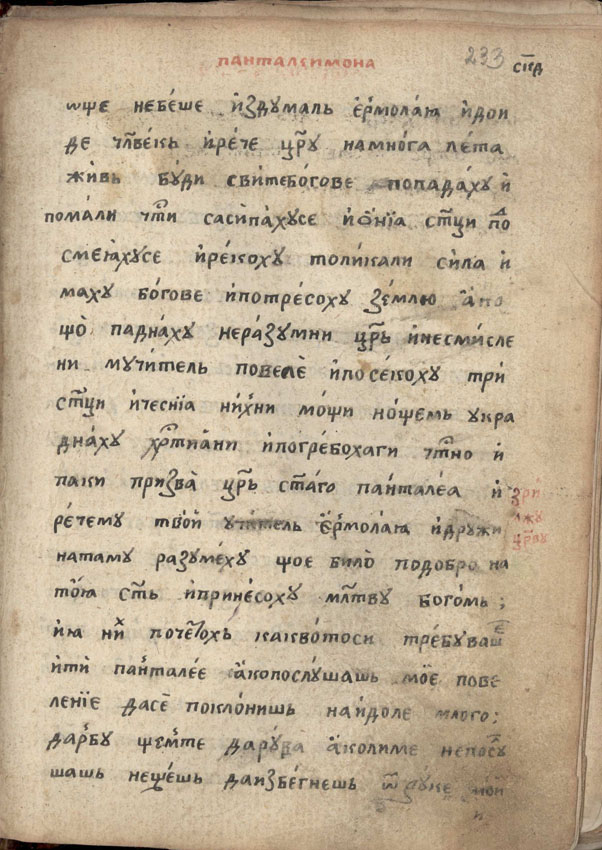 ПАНТАЛЕИМОНА 233 скд
ѡще небеше и҆здумаль є҆рмола́ю и҆дои
де чл҃векь и҆ре́че цр҃у намно́га ле́та
живь бу́ди свитебо́гове попада́ху и҆
пома́ли чт҃и сасипа́хусе и҆ѻни́а ст҃ци по
смеꙗ́хусе и҆реко́ху толи́кали си́ла и҆
маху бо́гове и҆потре́соху зе́млю а҆ко
що̀ падна́ху нера́зумни цр҃ь и҆несми́сле
ни мучи́тель повелѐ и҆посе́коху три
ст҃ци и҆чесні́а ни́хни мо́щи но́щемь укра
дна́ху хр҃тиа́ни и҆погре́бохаги чт҃но и҆
паки призва̀ цр҃ь ст҃аго па́нталеа и҆
ре́чему тво́й учи́тель є҆рмола́ю и҆дружи
натаму разуме́ху щое било̀ подобро на
то́ꙗ ст҃ь и҆прине́соху мл҃тву бого́мь ;
и҆ꙗ ни́х поче́тохь какво́тоси тре́буваше
и҆ти па́нталее а҆копослу́шашь мо́е пове
ле́ние дасѐ покло́нишь наи́доле много ;
дарбу щемте дару́ва а҆колиме непосу
шашь неще́шь даизбе́гнешь ѿ руке мои
и
зри
лжу
цр҃ву